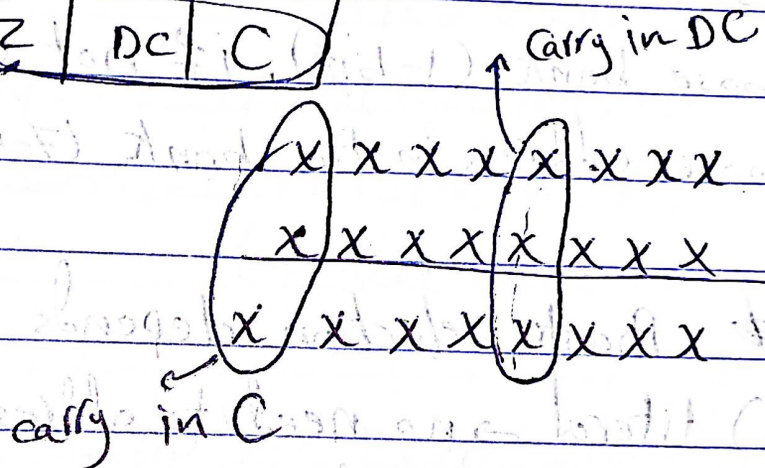 Z DC C
Carry in DC
X X X X X X X X
X X X X X X X X
X X X X X X X X
carry in C